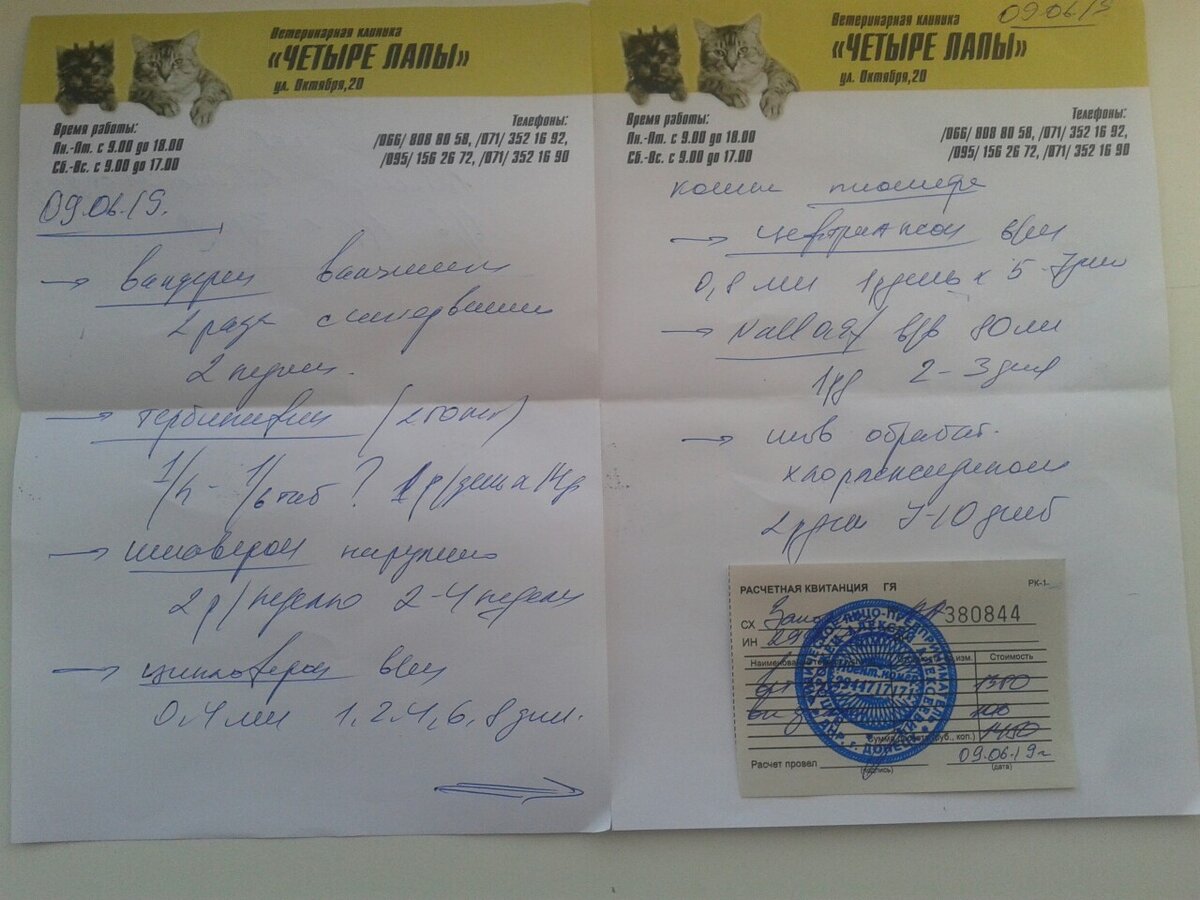 Ветеринарная клиника
«ЧЕТЫРЕ ЛАПЫ»
ул. Октября,20
Время работы:
Пн.-Пт. с 9.00 до 18.00
Сб.-Вс. с 9.00 до 17.00
Телефоны:
/066/ 808 80 58, /071/ 352 16 92,
/095/ 156 26 72, /071/ 352 16 90
09.06.19.
→ вандерм вакцина
2 раза с интервалом
2 недели.
→ тербинафин (250мг)
1/4 - 1/6 таб ? 1 р/день х 14д
→ имаверол наружно
2 р/неделю 2-4 недели
→ циклоферон в/м
0,4 мл 1,2,4,6,8 дни.
Ветеринарная клиника
«ЧЕТЫРЕ ЛАПЫ»
ул. Октября,20
09.06.19
Время работы:
Пн.-Пт. с 9.00 до 18.00
Сб.-Вс. с 9.00 до 17.00
Телефоны:
/066/ 808 80 58, /071/ 352 16 92,
/095/ 156 26 72, /071/ 352 16 90
пиометра
→ цефтриаксон в/м
0,8 мл 1р/день х 5-7дн
→ NaCl 0,9% в/в 80мл
1рд 2-3 дня
→ шов обработ.
хлоргексидином
2 р/день 7-10 дней
РАСЧЕТНАЯ КВИТАНЦИЯ ГЯ
РК-1-
СХ
380844
ИН
изм.
Стоимость
1350
100
1450
Расчет провел
(подпись)
09.06.19г
(дата)